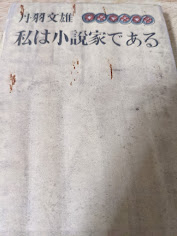 丹羽文雄
私は小説家である